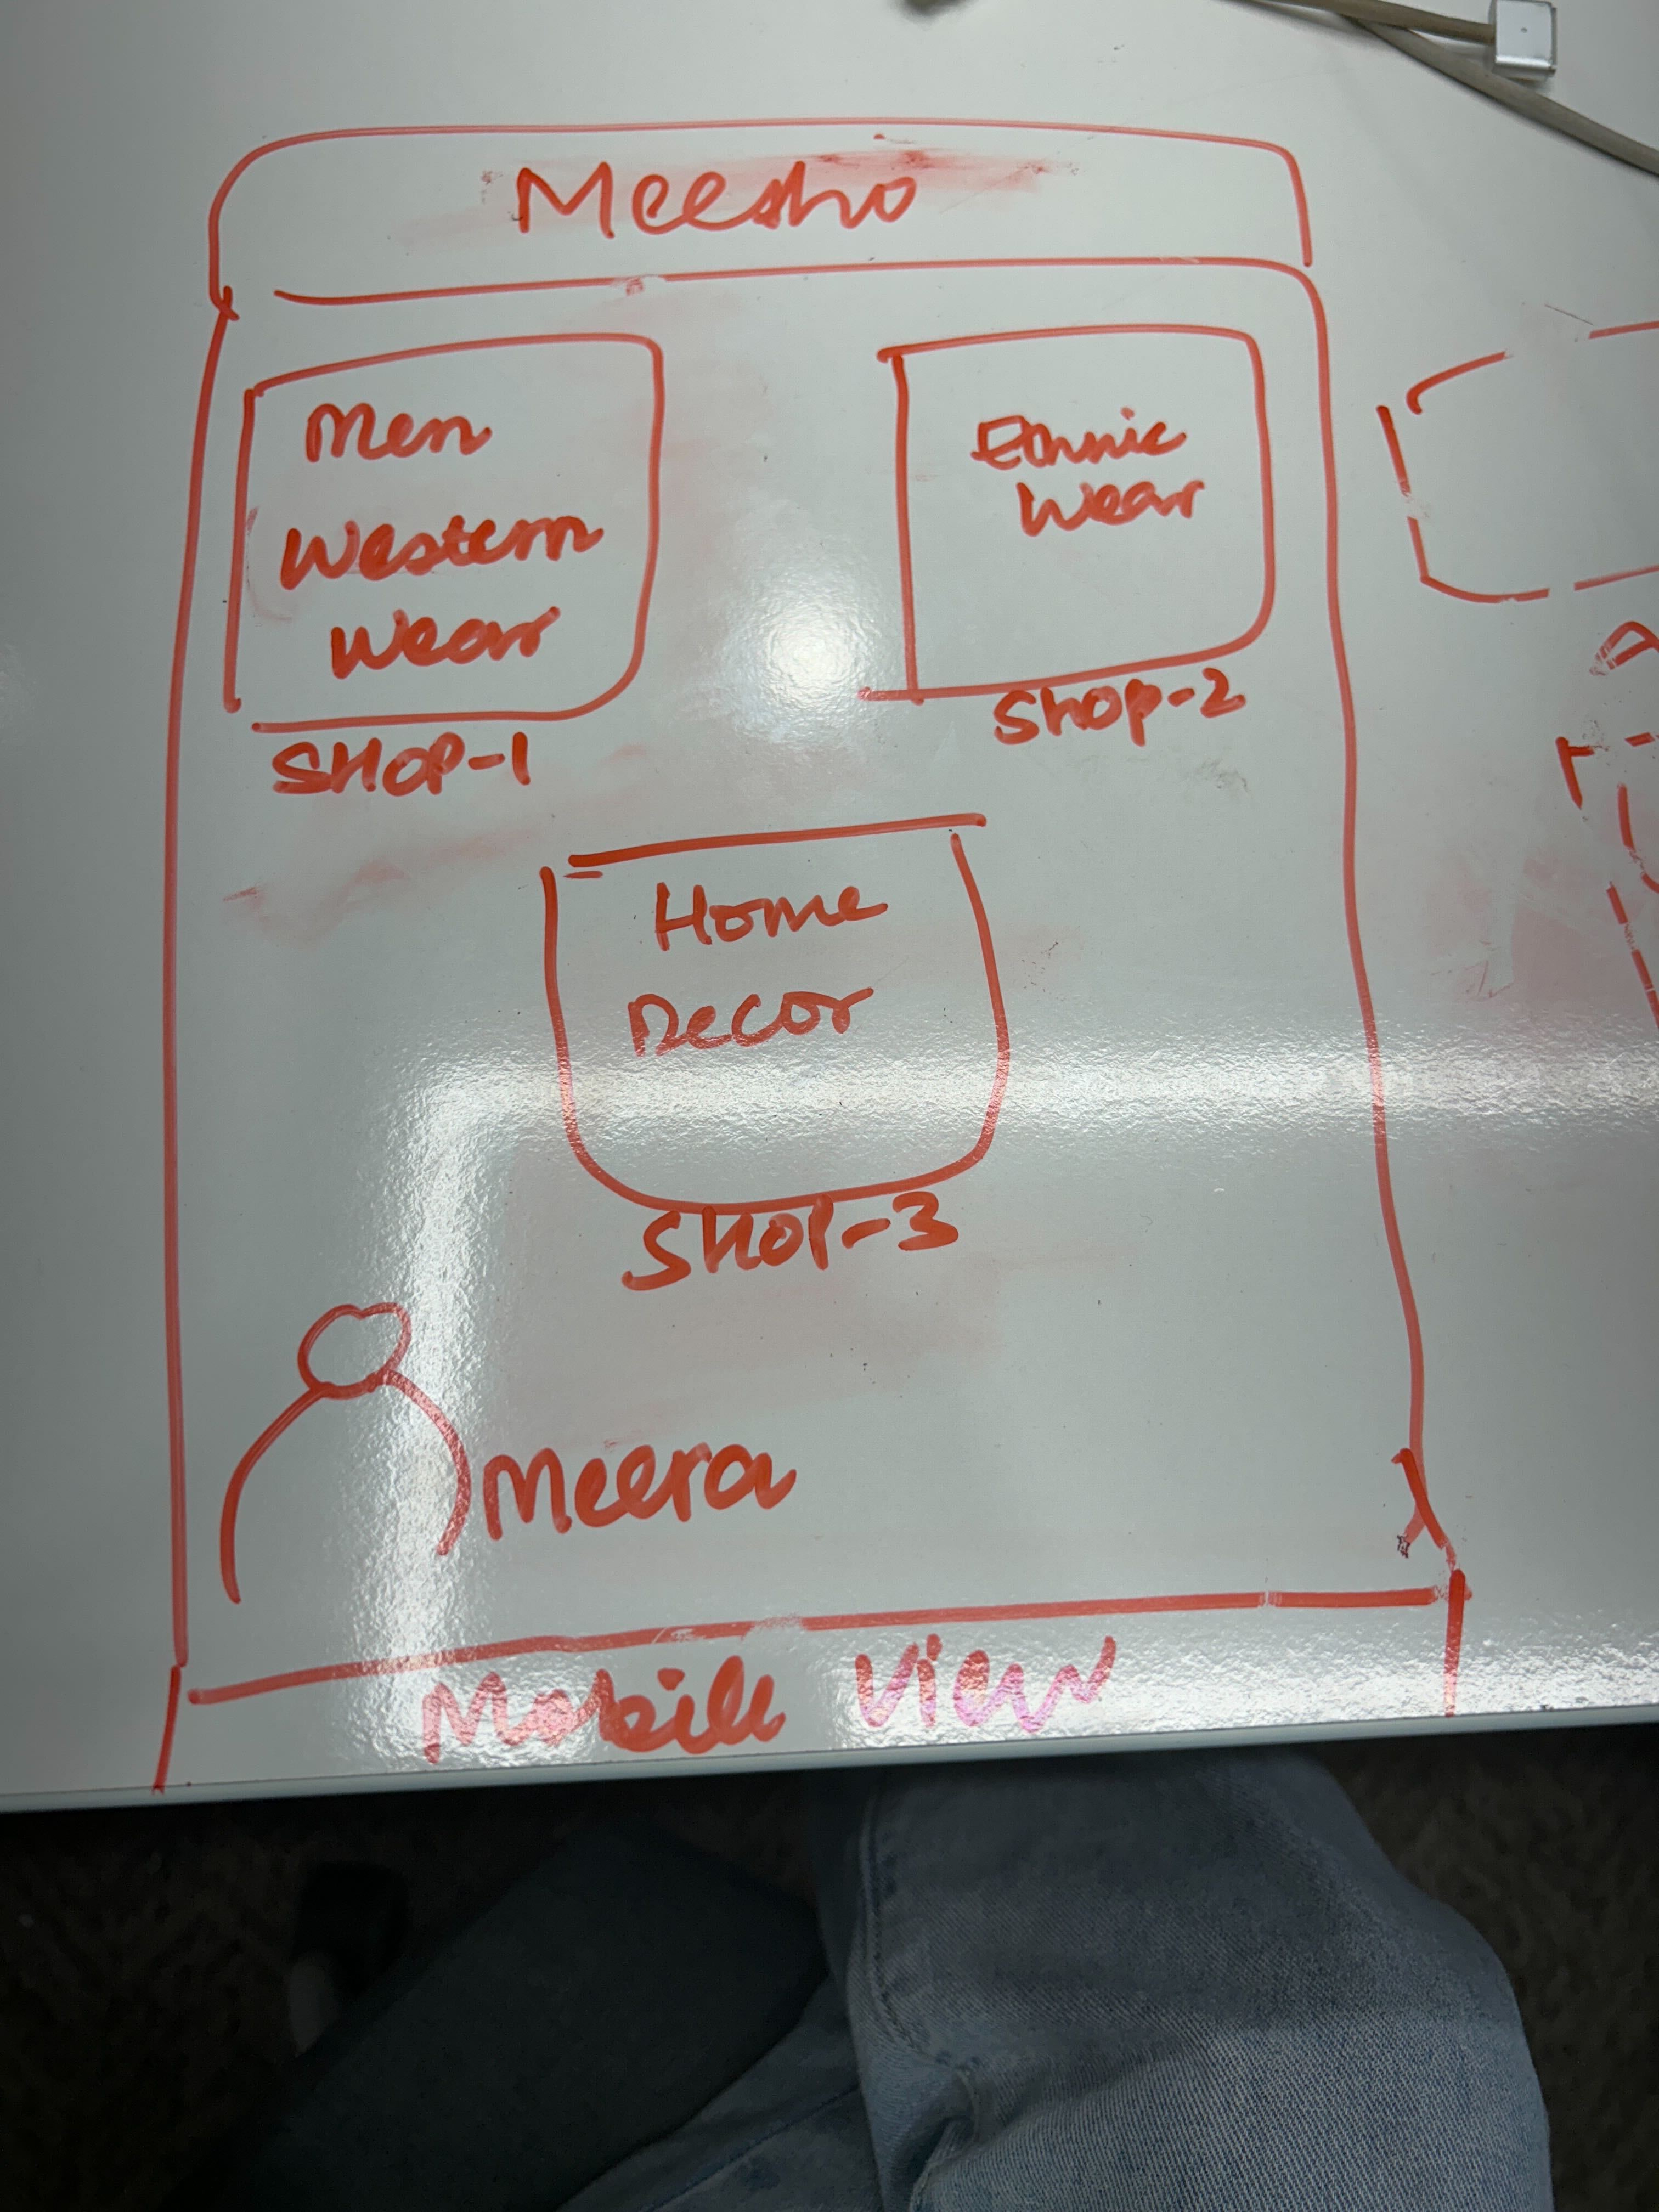 Meesho
Men
Western
Wear
SHOP-1
Ethnic
Wear
Shop-2
Home
Decor
SHOP-3
Meera
Mobile View